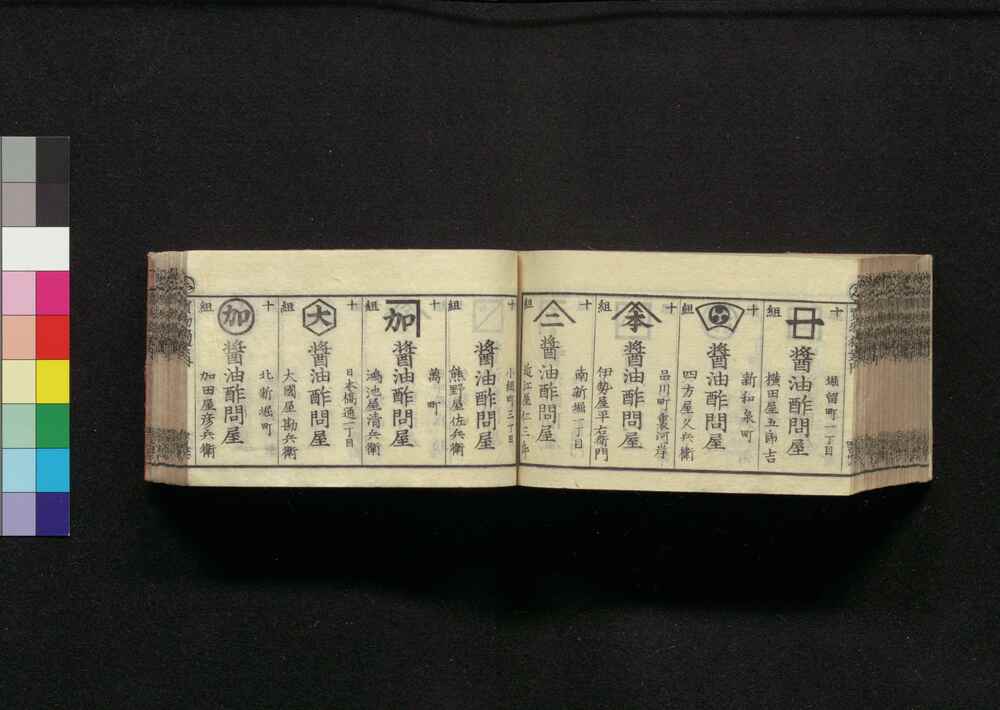 十組
堀留町一丁目
醬油酢問屋
横田屋五郎吉
十組
新和泉町
醬油酢問屋
四方屋久兵衛
十組
本
品川町裏河岸
醬油酢問屋
伊勢屋平右衛門
十組
二
南新堀一丁目
醬油酢問屋
近江屋仁三郎
十組
小網町三丁目
醬油酢問屋
熊野屋佐兵衛
十組
加
萬町
醬油酢問屋
鴻池屋清兵衛
十組
大
日本橋通二丁目
醬油酢問屋
大國屋勘兵衛
十組
加
北新堀町
醬油酢問屋
加田屋彦兵衛